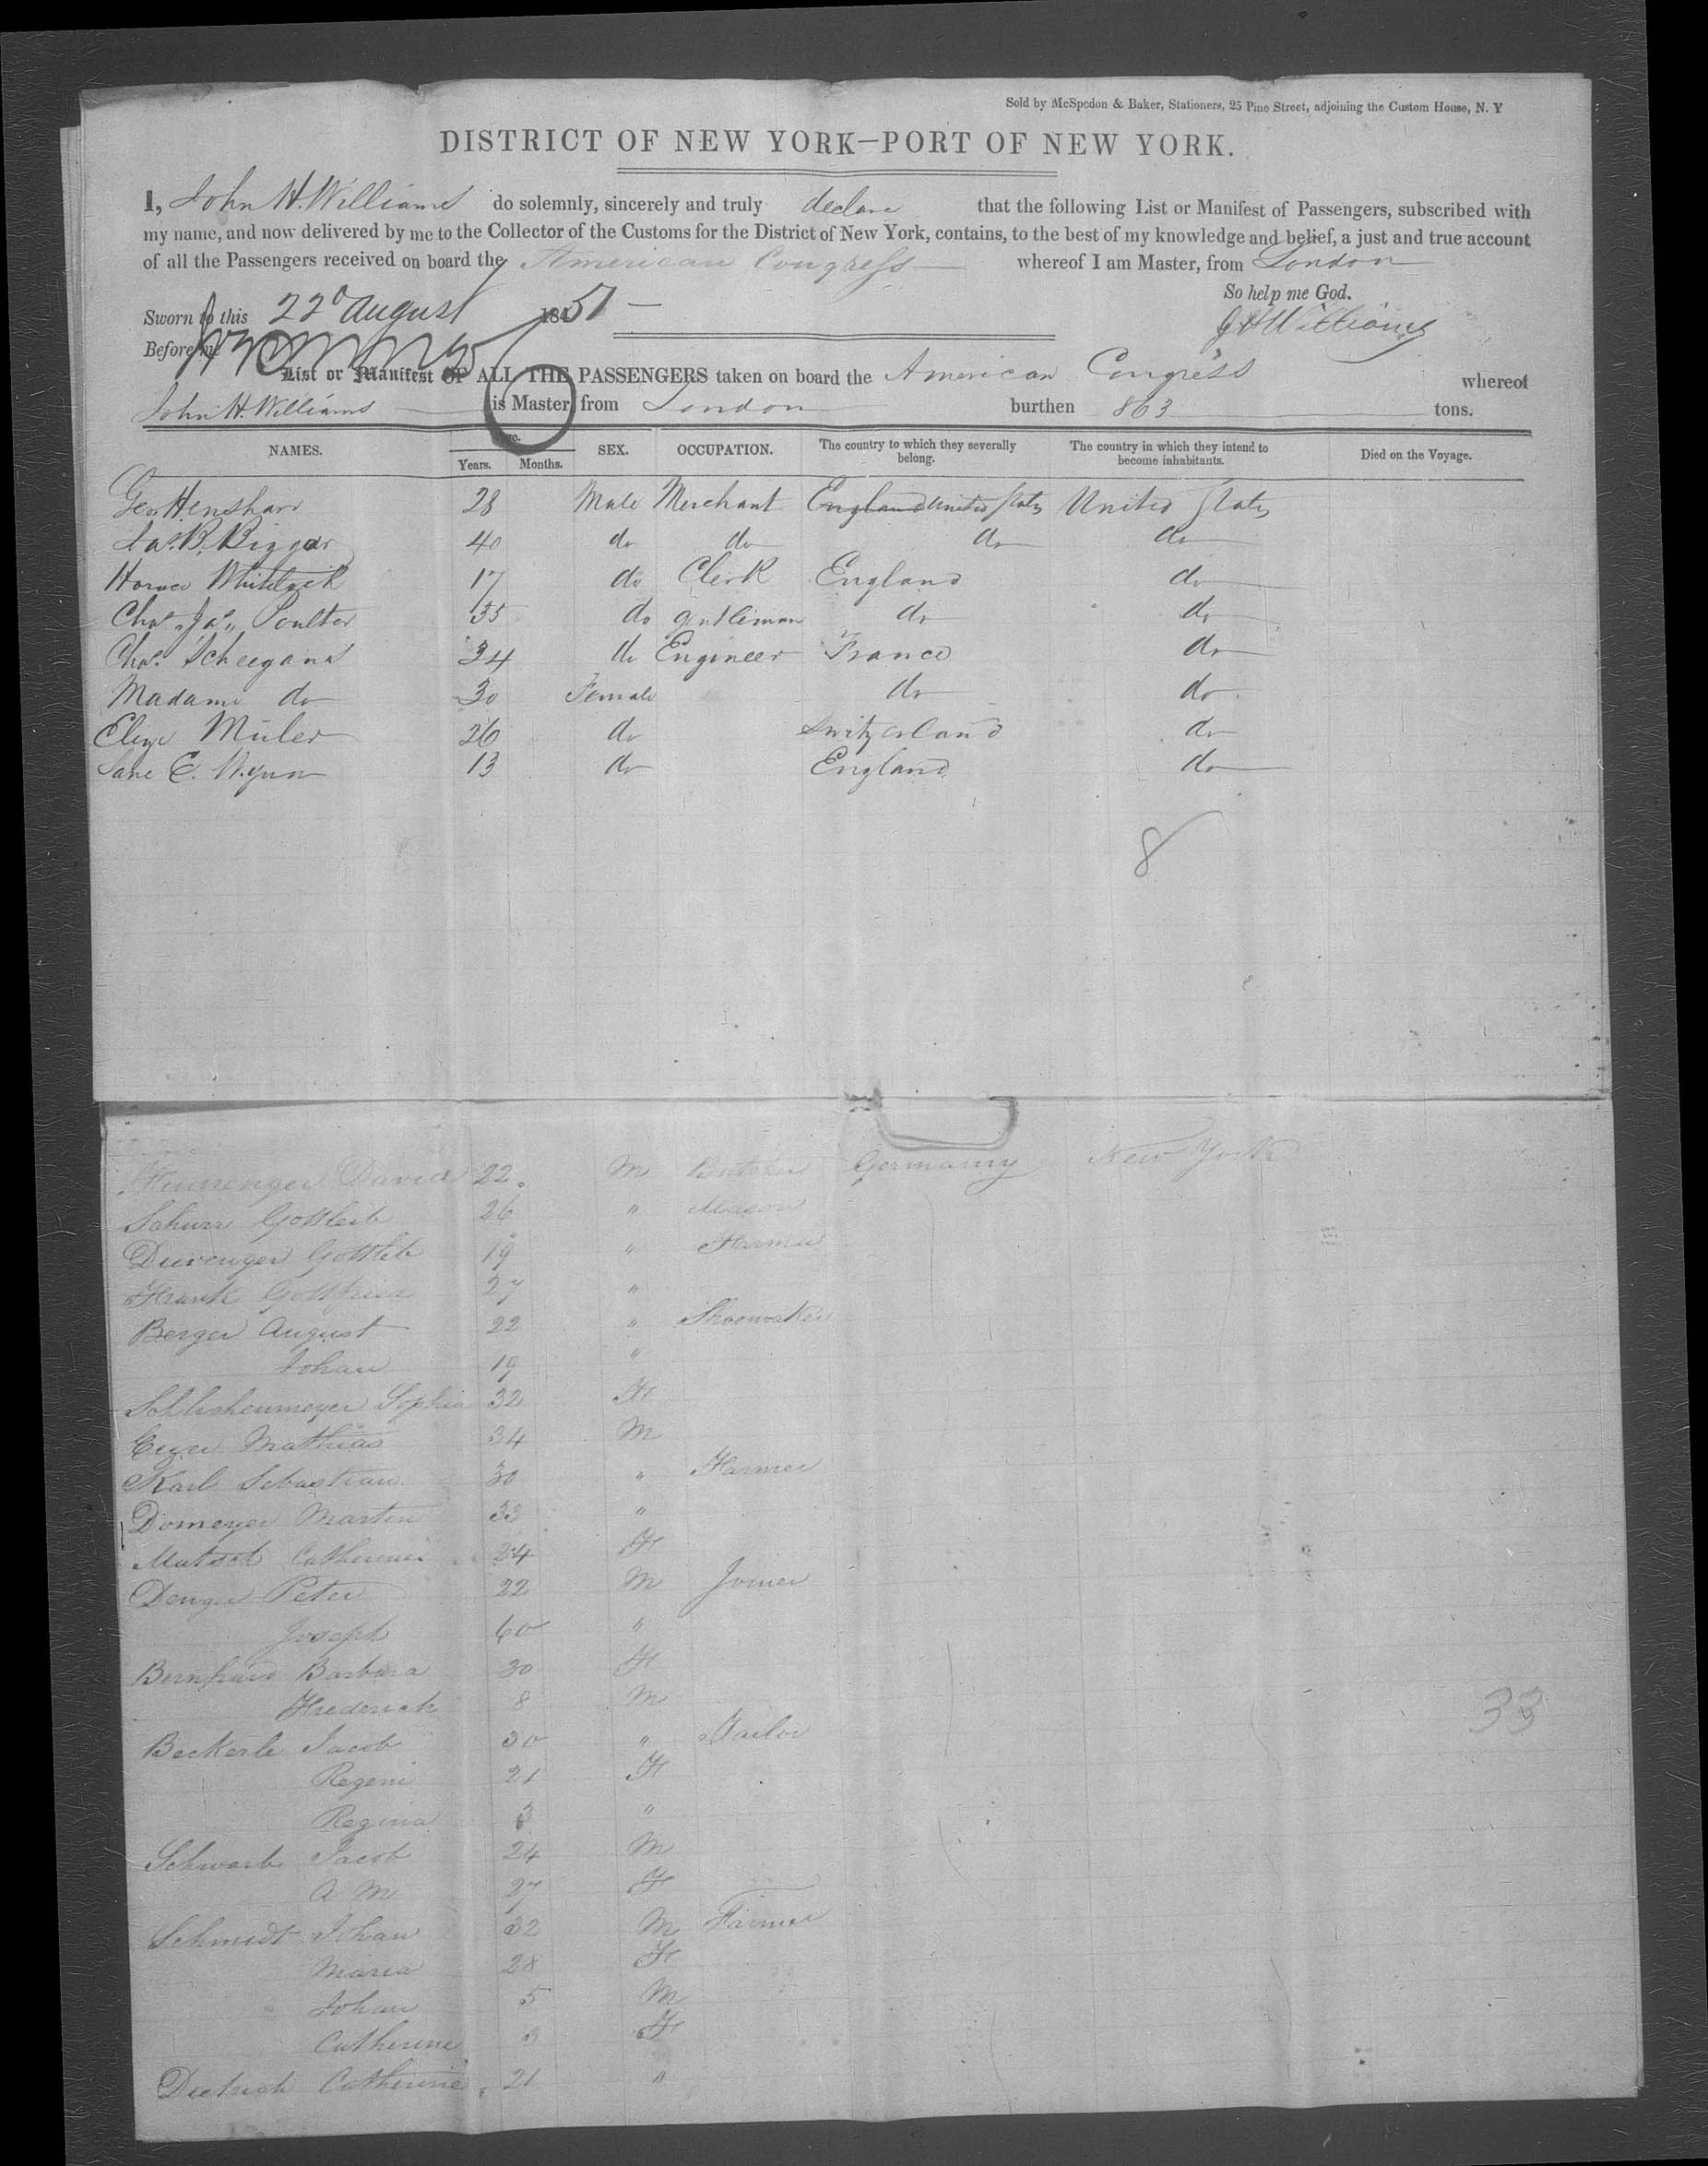 Sold by McSpedon & Baker, Stationers, 25 Pine Street, adjoining the Custom House, N. Y
DISTRICT OF NEW YORK—PORT OF NEW YORK.
I, John H. Williams do solemnly, sincerely and truly declare that the following List or Manifest of Passengers, subscribed with
my name, and now delivered by me to the Collector of the Customs for the District of New York, contains, to the best of my knowledge and belief, a just and true account
of all the Passengers received on board the American Congress whereof I am Master, from London
So help me God.
Sworn to this 22d August 1851
J H Williams
Before me
List or Manifest OF ALL THE PASSENGERS taken on board the American Congress whereof
John H. Williams is Master, from London burthen 863 tons.
NAMES. Years. Months. SEX. OCCUPATION. The country to which they severally belong. The country in which they intend to become inhabitants. Died on the Voyage.
Geo. Henshaw 28 Male Merchant England United States United States
Jas. B. Biggar 40 do do do do
Horace Whitlock 17 do Clerk England do
Chas. Jas. Poulter 35 do gentleman do do
Chas. Scheegans 34 do Engineer France do
Madame do 30 Female do do
Elize Müler 26 do Switzerland do
Jane E. Wynn 13 do England do
8
David 22 M Butcher Germany New York
Schurr Gottleib 26 " Mason
Gottleib 19 " Farmer
Frank Gottfried 27 "
Berger August 22 " Shoemaker
Johan 19 "
Sophia 32 F
Mathias 34 M
Karl Sebastian 30 " Farmer
Domeyer Martin 33 "
Mutsch Catherine 24 F
Peter 22 M Joiner
Joseph 60 "
Bernhard Barbara 30 F
Frederick 8 M
33
Beckerle Jacob 30 " Tailor
Regeni 21 F
Regina 3 "
Schwarb Jacob 24 M
A M 27 F
Schmidt Johan 32 M Farmer
Maria 28 F
Johan 5 M
Catherine 3 F
Dietrich Catherine 21 "